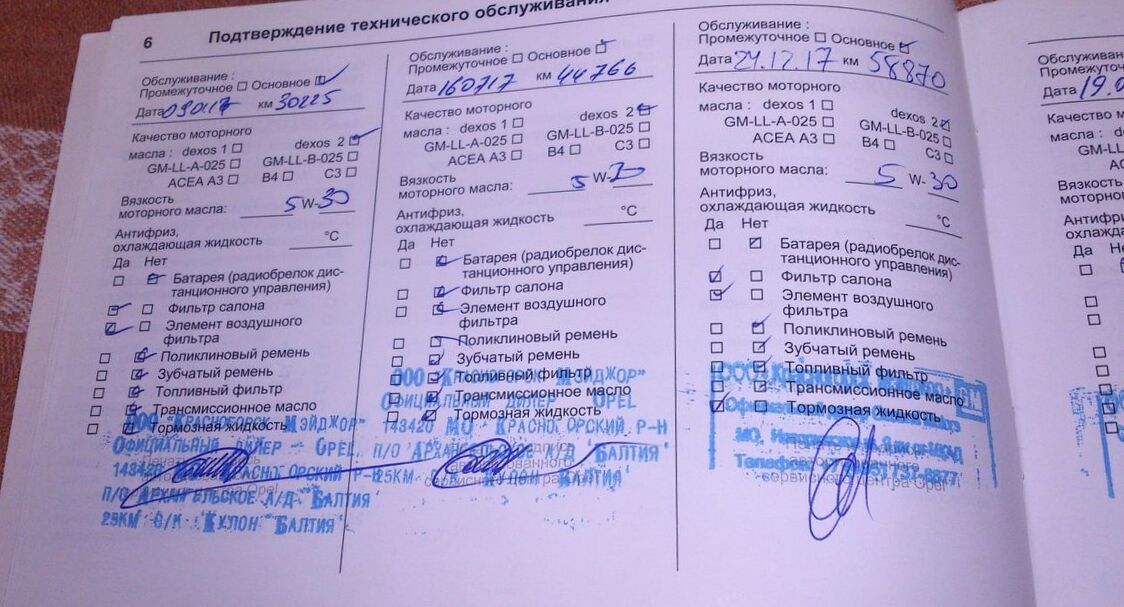 6 Подтверждение технического обслуживания
Обслуживание :
Промежуточное □ Основное ☑
Дата 090117 км 30225
Качество моторного
масла : dexos 1 □ dexos 2 ☑
GM-LL-A-025 □ GM-LL-B-025 □
ACEA A3 □ B4 □ C3 □
Вязкость
моторного масла: 5 W-30
Антифриз,
охлаждающая жидкость °C
Да Нет
□ ☑ Батарея (радиобрелок дис-
танционного управления)
☑ □ Фильтр салона
☑ □ Элемент воздушного
фильтра
□ ☑ Поликлиновый ремень
□ ☑ Зубчатый ремень
□ ☑ Топливный фильтр
□ ☑ Трансмиссионное масло
□ ☑ Тормозная жидкость
ООО "Красногорск Мэйджор"
Официальный дилер - OPEL
143420 МО Красногорский р-н
П/О Архангельское А/Д "Балтия"
25КМ "Балтия"
Обслуживание :
Промежуточное □ Основное ☑
Дата 160717 км 44766
Качество моторного
масла : dexos 1 □ dexos 2 ☑
GM-LL-A-025 □ GM-LL-B-025 □
ACEA A3 □ B4 □ C3 □
Вязкость
моторного масла: 5 W-
Антифриз,
охлаждающая жидкость °C
Да Нет
□ ☑ Батарея (радиобрелок дис-
танционного управления)
□ ☑ Фильтр салона
□ ☑ Элемент воздушного
фильтра
□ ☑ Поликлиновый ремень
□ ☑ Зубчатый ремень
□ ☑ Топливный фильтр
□ ☑ Трансмиссионное масло
□ ☑ Тормозная жидкость
ООО "Красногорск Мэйджор"
Официальный дилер OPEL
143420 МО Красногорский р-н
П/О Архангельское А/Д "Балтия"
25КМ
сервисного центра Opel
Обслуживание :
Промежуточное □ Основное ☑
Дата 24.12.17 км 58870
Качество моторного
масла : dexos 1 □ dexos 2 ☑
GM-LL-A-025 □ GM-LL-B-025 □
ACEA A3 □ B4 □ C3 □
Вязкость
моторного масла: 5 W-30
Антифриз,
охлаждающая жидкость °C
Да Нет
□ ☑ Батарея (радиобрелок дис-
танционного управления)
☑ □ Фильтр салона
☑ □ Элемент воздушного
фильтра
□ ☑ Поликлиновый ремень
□ ☑ Зубчатый ремень
□ ☑ Топливный фильтр
□ ☑ Трансмиссионное масло
☑ □ Тормозная жидкость
ООО
GM
МО,
сервисного центра Opel
Обслуживание
Промежуточ
Дата 19.0
Качество м
масла :
GM-LL-A
Вязкость
моторного
Антифри
охлажда
Да